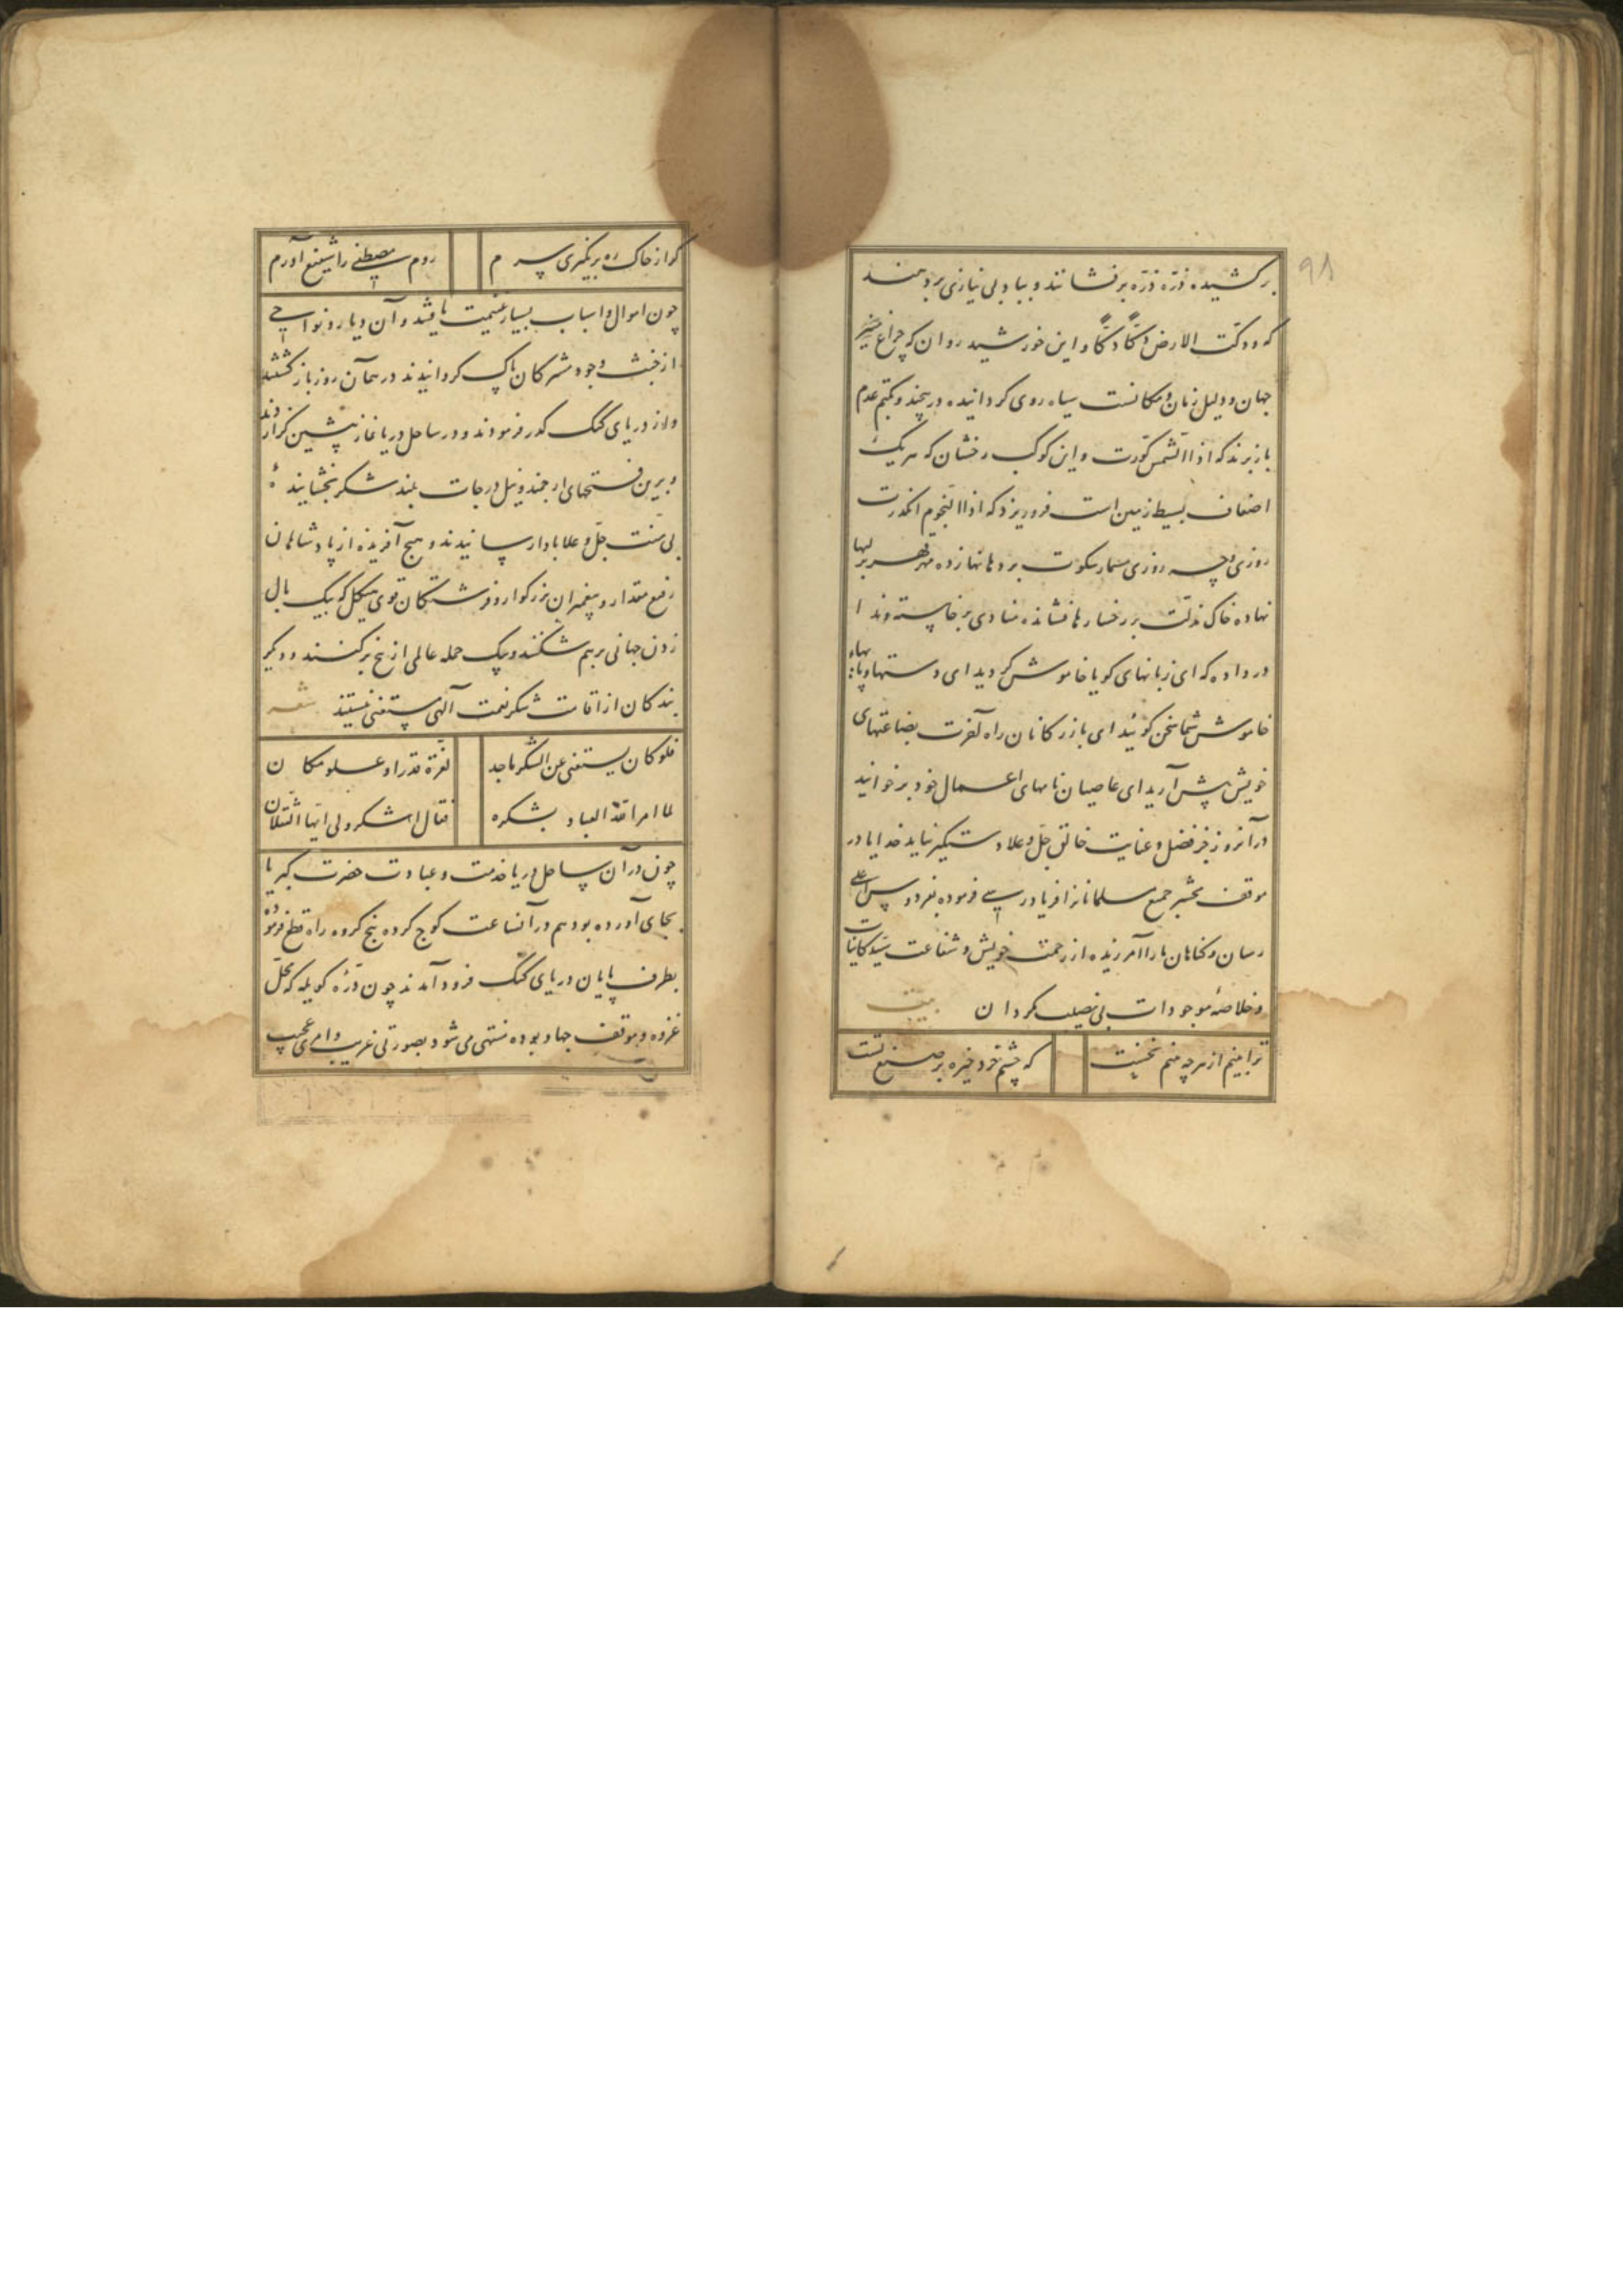 ۹۸
برکشیده ذره ذره برفشانند و بباد بی نیازی بردهند
که و دکت الارض دکا دکا و این خورشید روان که چراغ
جهان و دلیل زمان و مکانست سیاه روی گردانیده درپیچند و بکتم عدم
بازبرند که اذا الشمس کورت و این کوکب رخشان که هر یک
اضعاف بسیط زمین است فروریزد که اذا النجوم انکدرت
روزی و چه روزی مسمار سکوت بر دهانها زده مهر قهر بر لبها
نهاده خاک مذلت بر رخسارها فشانده منادی برخاسته و ندا
در داده که ای زبانهای کویا خاموش کردید ای دستها و پایهای
خاموش شما سخن کوئید ای بازرکانان راه آخرت بضاعتهای
خویش پیش آرید ای عاصیان نامهای اعمال خود برخوانید
در آنروز بجز فضل و عنایت خالق جل و علا دستکیر نیاید خدایا در
موقف محشر جمع مسلمانانرا فریادرسی فرموده بفردوس اعلی
رسان و کناهان ما را آمرزیده از رحمت خویش و شفاعت سید کاینات
و خلاصه موجودات بی نصیب مکردان بیت
ترا بینم از هرچه بینم نخست که چشم خرد خیره بر صنع تست
کر از خاک ره برنکیری سرم روم مصطفی را شفیع آورم
چون اموال و اسباب بسیار غنیمت یافتند و آن دیار و نواحی
از خبث وجود مشرکان پاک کردانیدند در همان روز بازکشتند
و از دریای کنک کذر فرمودند و در ساحل دریا نماز پیشین کزاردند
و برین فتحهای ارجمند و نیل درجات بلند شکر بخشاینده
بی منت جل و علا بادا رسانیدند و هیچ آفریده از پادشاهان
رفیع مقدار و پیغمبران بزرکوار و فرشتکان قوی هیکل که بیک بال
زدن جهانی برهم شکنند و بیک حمله عالمی از بیخ برکنند و دیکر
بندکان از اقامت شکر نعمت آلهی مستغنی نیستند شعر
فلو کان یستغنی عن الشکر ماجد لعزة قدر او علو مکان
لما امر الله العباد بشکره فقال اشکرو لی ایها الثقلان
چون در آن ساحل دریا خدمت و عبادت حضرت کبریا
بجای آورده بود هم در آنساعت کوچ کرده پنج کروه راه قطع فرموده
بطرف پایان دریای کنک فرود آمدند چون دره کوپله که محل
غزوه و موقف جهاد بوده منتهی می شود بصورتی غریب و امری عجیب